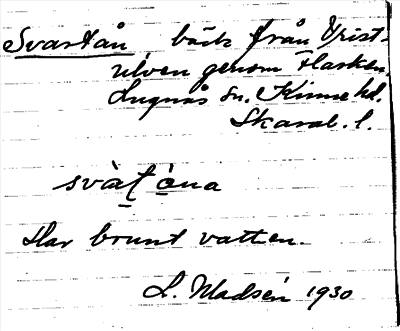 Svartån bäck från Vrist-
ulven genom Flasken.
Lugnås sn. Kinne hd.
Skarab. l.
svàṭ ò̱na
Har brunt vatten.
L. Madsén 1930